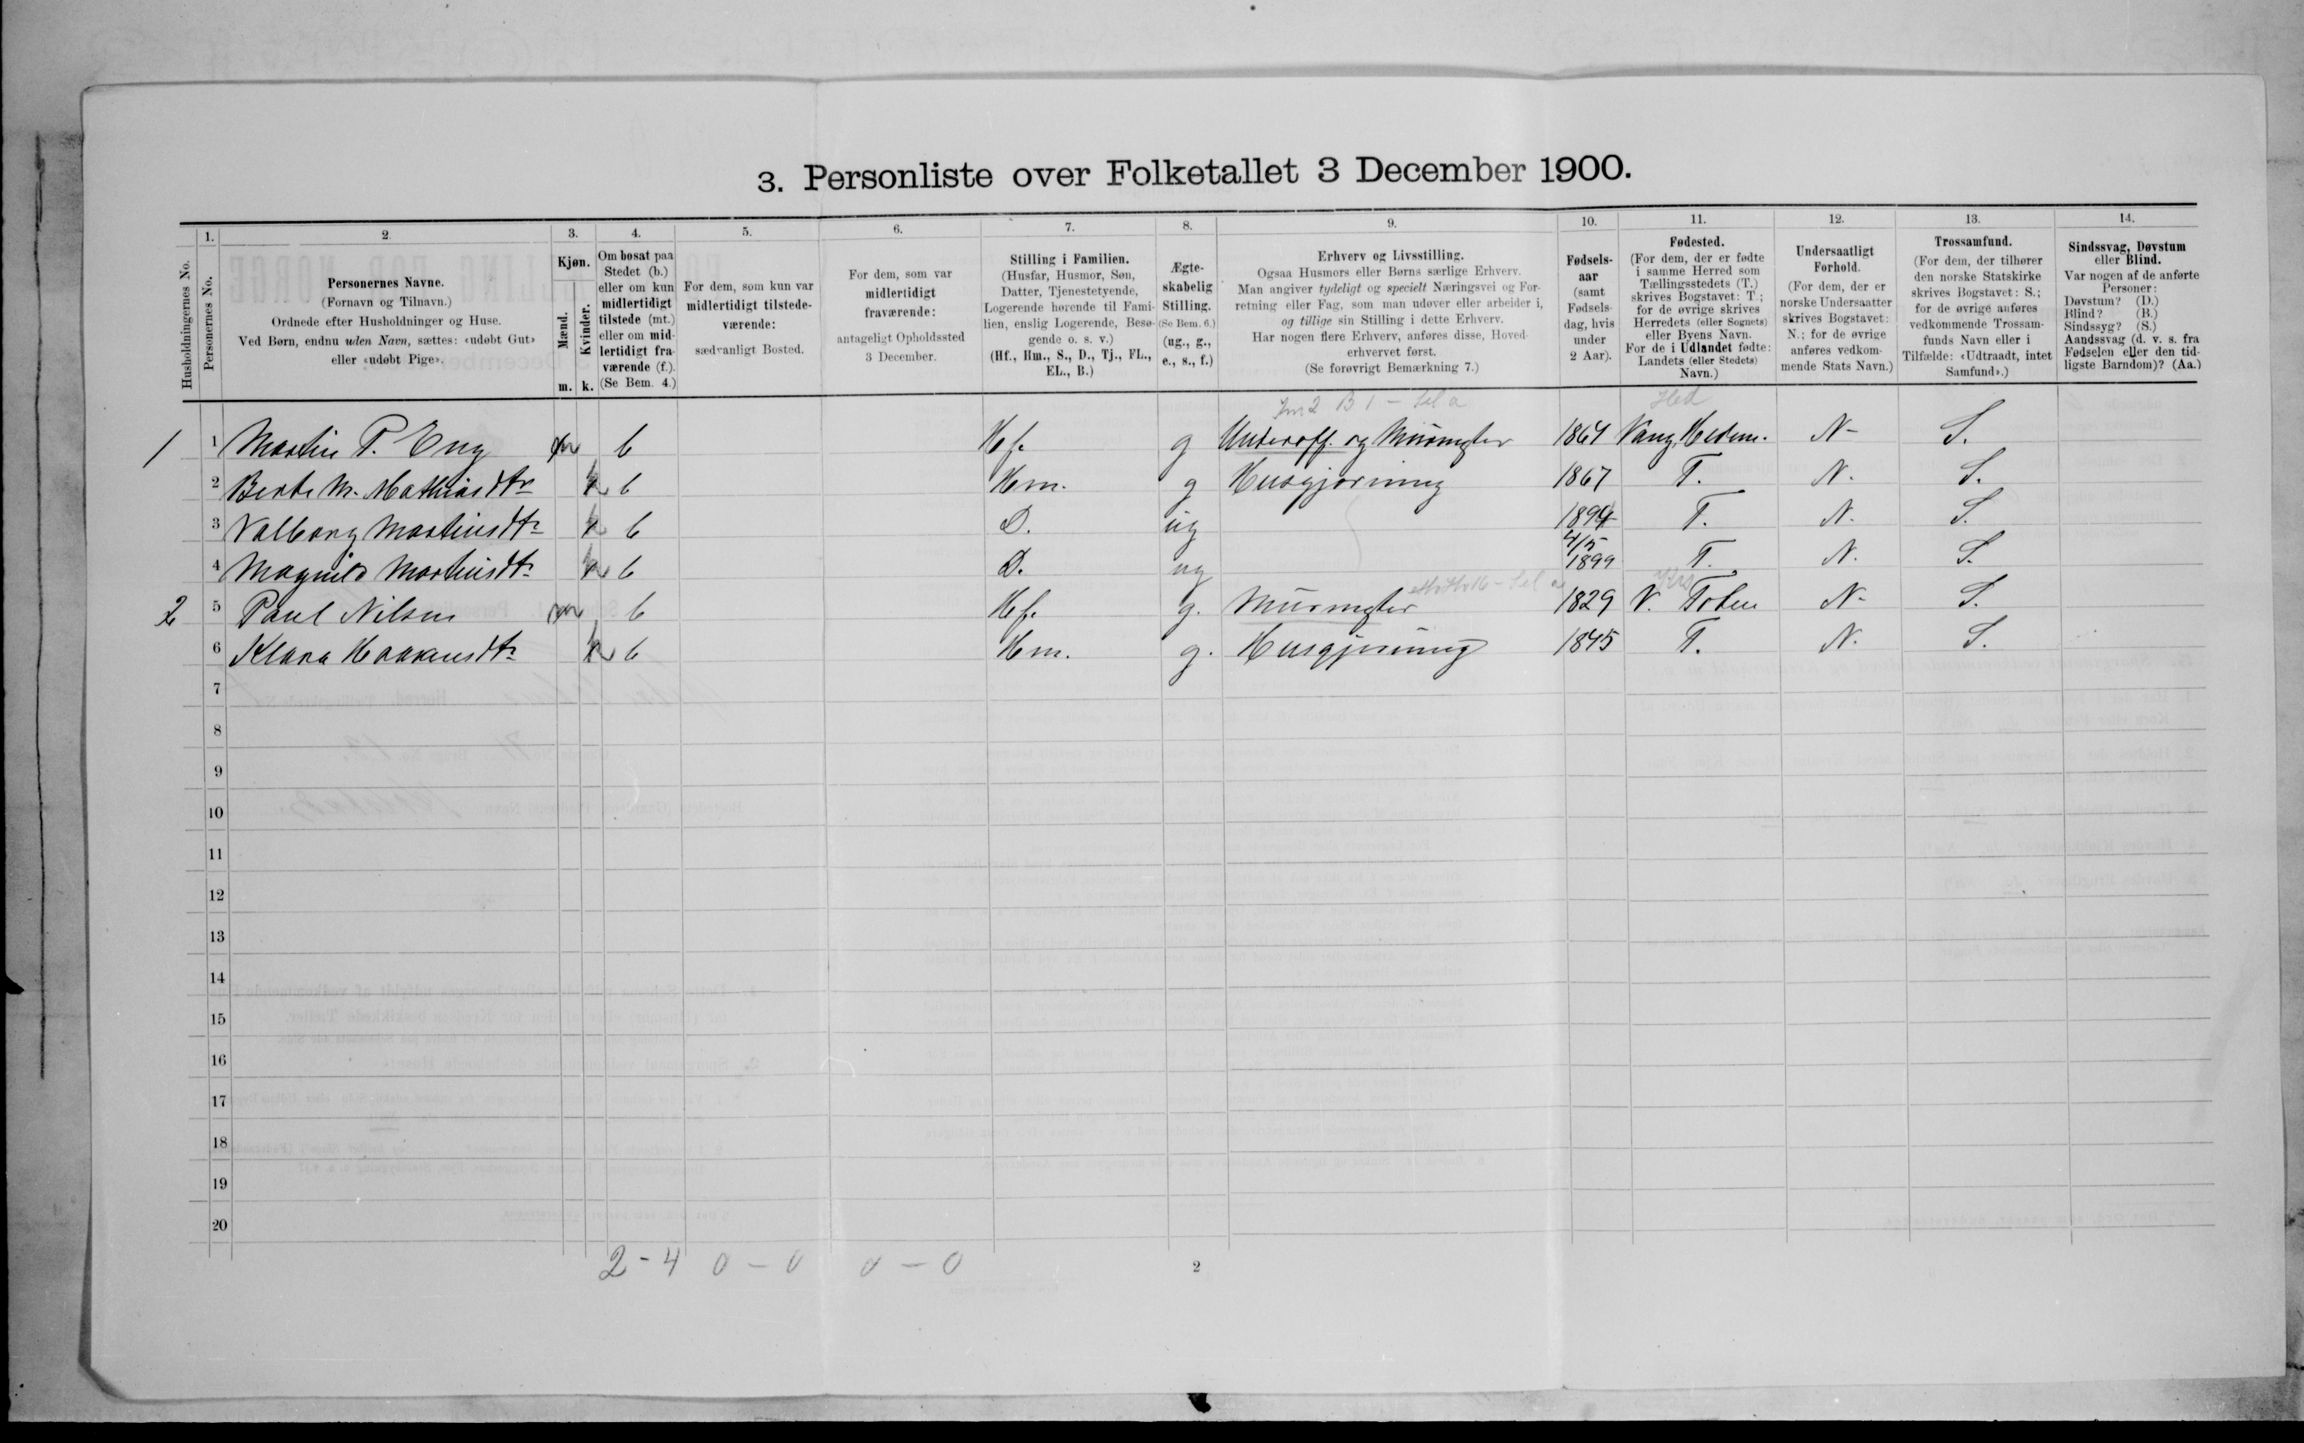 3. Personliste over Folketallet 3 December 1900.
Husholdningernes No.
1.
Personernes No.
2.
Personernes Navne.
(Fornavn og Tilnavn.)
Ordnede efter Husholdninger og Huse.
Ved Børn, endnu uden Navn, sættes: «udøbt Gut»
eller «udøbt Pige».
3.
Kjøn.
Mænd.
Kvinder.
m. k.
4.
Om bosat paa
Stedet (b.)
eller om kun
midlertidigt
tilstede (mt.)
eller om mid-
lertidigt fra-
værende (f.).
(Se Bem. 4.)
5.
For dem, som kun var
midlertidigt tilstede-
værende:
sædvanligt Bosted.
6.
For dem, som var
midlertidigt
fraværende:
antageligt Opholdssted
3 December.
7.
Stilling i Familien.
(Husfar, Husmor, Søn,
Datter, Tjenestetyende,
Logerende hørende til Fami-
lien, enslig Logerende, Besø-
gende o. s. v.)
(Hf., Hm., S., D., Tj., FL.,
EL., B.)
8.
Ægte-
skabelig
Stilling.
(Se Bem. 6.)
(ug., g.,
e., s., f.)
9.
Erhverv og Livsstilling.
Ogsaa Husmors eller Børns særlige Erhverv.
Man angiver tydeligt og specielt Næringsvei og For-
retning eller Fag, som man udøver eller arbeider i,
og tillige sin Stilling i dette Erhverv.
Har nogen flere Erhverv, anføres disse, Hoved-
erhvervet først.
(Se forøvrigt Bemærkning 7.)
10.
Fødsels-
aar
(samt
Fødsels-
dag, hvis
under
2 Aar).
11.
Fødested.
(For dem, der er fødte
i samme Herred som
Tællingsstedets (T.)
skrives Bogstavet: T.;
for de øvrige skrives
Herredets (eller Sognets)
eller Byens Navn.
For de i Udlandet fødte:
Landets (eller Stedets)
Navn.)
12.
Undersaatligt
Forhold.
(For dem, der er
norske Undersaatter
skrives Bogstavet:
N.; for de øvrige
anføres vedkom-
mende Stats Navn.)
13.
Trossamfund.
(For dem, der tilhører
den norske Statskirke
skrives Bogstavet: S.;
for de øvrige anføres
vedkommende Trossam-
funds Navn eller i
Tilfælde: «Udtraadt, intet
Samfund».)
14.
Sindssvag, Døvstum
eller Blind.
Var nogen af de anførte
Personer:
Døvstum? (D.)
Blind? (B.)
Sindssyg? (S.)
Aandssvag (d. v. s. fra
Fødselen eller den tid-
ligste Barndom)? (Aa.)
B 1 - Sel a Hed
1 1 Martin P. Eng m b Hf. g Underoff. og Murmester 1864 Vang, Hedem. N. S.
2 Berte M. Mathiasdtr k b Hm. g Husgjerning 1867 T. N. S.
3 Valborg Martinsdtr k b D. ug 1894 T. N. S.
4 Magnild Martinsdtr k b D. ug 4/5 1899 T. N. S.
2 5 Paul Nilsen m b Hf. g. Murmester 1829 V. Toten N. S.
6 Klara Haakensdtr k b Hm. g. Husgjerning 1845 T. N. S.
7
8
9
10
11
12
13
14
15
16
17
18
19
20
2 - 4 0 - 0 0 - 0
2